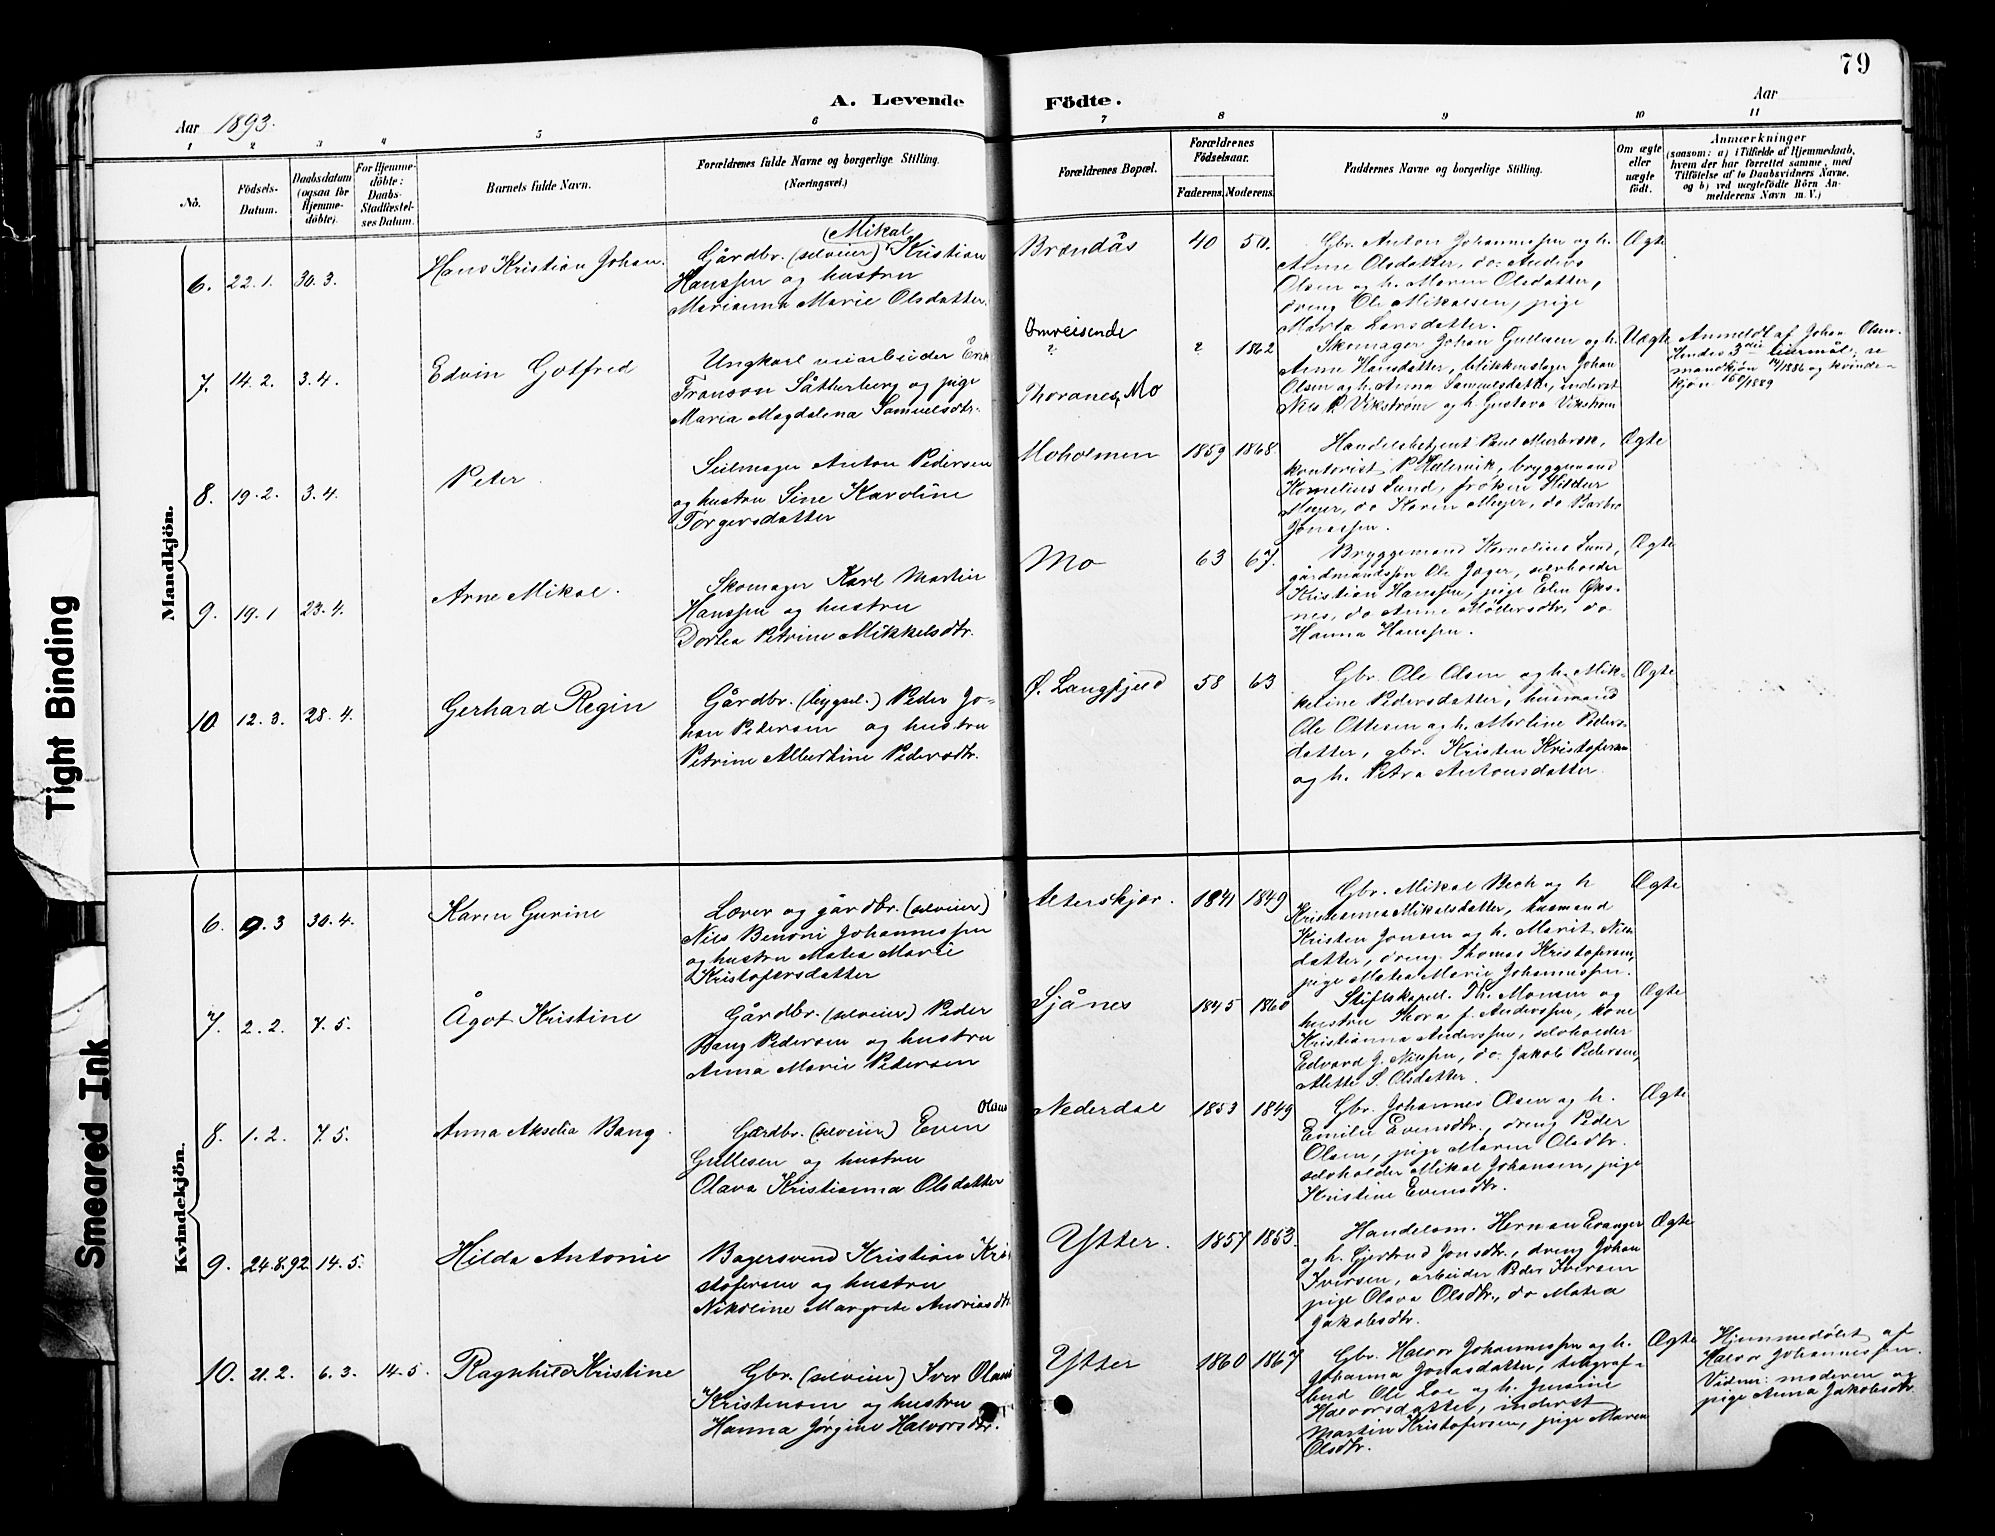 79
A. Levende Födte.
Aar 1893.
Aar
1 2 3 4 5 6 7 8 9 10 11
No.
Födsels-
Datum.
Daabsdatum
(ogsaa for
Hjemme-
döbte).
For Hjemme-
döbte:
Daabs-
Stadfæstel-
ses Datum.
Barnets fulde Navn.
Forældrenes fulde Navne og borgerlige Stilling.
(Næringsvei.)
Forældrenes Bopæl.
Forældrenes
Födselsaar.
Faderens. Moderens.
Faddernes Navne og borgerlige Stilling.
Om ægte
eller
uægte
födt.
Anmærkninger
(saasom: a) i Tilfælde af Hjemmedaab,
hvem der har forrettet samme, med
Tilföielse af to Daabsvidners Navne,
og b) ved uægtefödte Börn An-
melderens Navn m. V.)
Mandkjön.
6. 22.1. 30.3.
Hans Kristian Johan.
(Mikal
Gårdbr. (selveier) Kristian
Hanssen og hustru
Marianna Marie Olsdatter.
Brændås
40 50.
Gbr. Anton Johannessen og h.
Anne Olsdatter, do. Anders
Olsen og h. Maren Olsdatter,
dreng Ole Mikalsen, pige
Marta Larsdatter.
Ægte
7. 14.2. 3.4.
Edvin Gotfred
Ungkarl veiarbeider Erik
Franson Såtterberg og pige
Maria Magdalena Samuelsdtr.
Omreisende
?
Thoranes, Mo
? 1862
Skomager Johan Gullesen og h.
Anne Hansdatter, blikkenslager Johan
Olsen og h. Anna Samuelsdatter, inderst
Nils P. Vikström og h. Gustava Vikström
Uægte
Anmeldt af Johan Olsen.
Hendes 3die leiermål; se
mandkjøn 14/1886 og kvinde-
kjøn 60/1889
8. 19.2. 3.4.
Peter.
Seilmager Anton Pedersen
og hustru Sine Karoline
Torgersdatter
Moholmen
1859 1868.
Handelsbetjent Paul Meerbrok,
kontorist P. Hælervik, bryggemand
Kornelius Lund, frøken Hildur
Meyer, do Karen Meyer, do Barbra
Jonassen.
Ægte
9. 19.1 23.4.
Arne Mikal.
Skomager Karl Martin
Hanssen og hustru
Dortea Petrine Mikkelsdtr.
Mo
63 67.
Bryggemand Kornelius Lund,
gårdmandssøn Ole Jæger, selvholder
Kristian Hanssen, pige Elen Øks-
nes, do Anne Pedersdtr. do
Hanna Hanssen.
Ægte
10. 12.3. 28.4.
Gerhard Regin
Gårdbr. (bygsel.) Peder Jo-
han Pedersen og hustru
Petrine Albertine Pedersdtr.
Ø. Langfjeld
58 63
Gbr. Ole Olsen og h. Mik-
keline Pedersdatter, husmand
Ole Ottesen og h. Martine Peders-
datter, gbr. Kristen Kristofersen
og h. Petra Antonsdatter.
Ægte
Kvindekjön.
6. 9.3 30.4.
Karen Gurine
Lærer og gårdbr. (selveier)
Nils Benoni Johannessen
og hustru Matea Marie
Kristofersdatter
Alterskjær.
1841 1849
Gbr. Mikal Bech og h
Kristianna Mikalsdatter, husmand
Kristen Jonsen og h. Marit Niels-
datter, dreng Thomas Kristofersen,
pige Matea Marie Johannessen.
Ægte
7. 2.2. 7.5.
Ågot Kristine
Gårdbr. (selveier) Peder
Bang Pedersen og hustru
Anna Marie Pedersen
Sjånes
1845 1860
Stiftskapell. Th. Monsen og
hustru Thora f. Anderssen, kone
Kristianna Anderssen, selvholder
Edvard J. Nilssen, do. Jakob Pedersen,
Alette S. Olsdatter.
Ægte
8. 1.2. 7.5.
Anna Akselia Bang.
Olaus
Gårdbr. (selveier) Even
Gullesen og hustru
Olava Kristianna Olsdatter
Nederdal
1853 1849
Gbr. Johannes Olsen og h.
Emilie Evensdtr., dreng Peder
Olsen, pige Maren Olsdtr.
selvholder Mikal Johansen, pige
Kristine Evensdtr.
Ægte
9. 24.8.92 14.5.
Hilda Antonie
Bagersvend Kristian Kri-
stofersen og hustru
Nikoline Margrete Andreasdtr.
Ytter.
1857 1853.
Handelsm. Herman Evanger
og h. Gjertrud Jonsdtr., dreng Johan
Iversen, arbeider Peder Iversen
pige Olava Olsdtr., do Matea
Jakobsdtr.
Ægte
10. 21.2. 6.3. 14.5.
Ragnhild Kristine
Gbr. (selveier) Iver Olaus
Kristensen og hustru
Hanna Jørgine Halvorsdtr.
Ytter
1860 1867
Gbr. Halvor Johannessen og h.
Johanna Jonasdatter, telegraf-
bud Ole Loe og h. Gurine
Halvorsdatter, inderst
Martin Kristofersen, pige Maren
Olsdtr.
Ægte
Hjemmedøbt af
Halvor Johannessen.
Vidner: moderen og
pige Anna Jakobsdtr.
Tight Binding
Smeared Ink